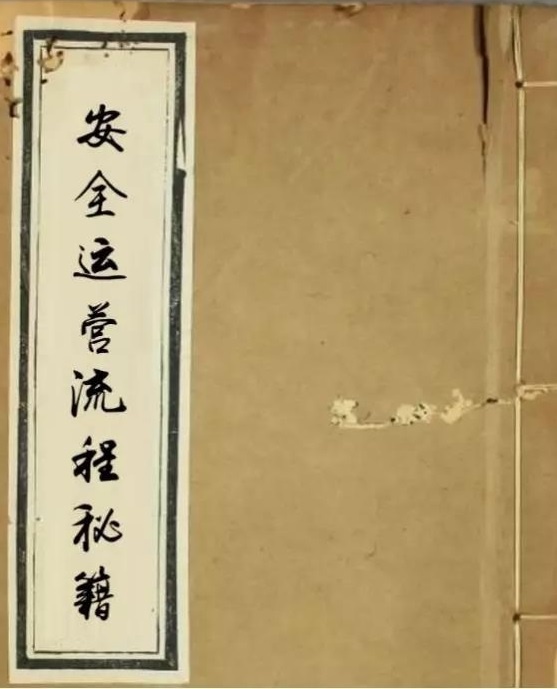 安全运营流程秘籍